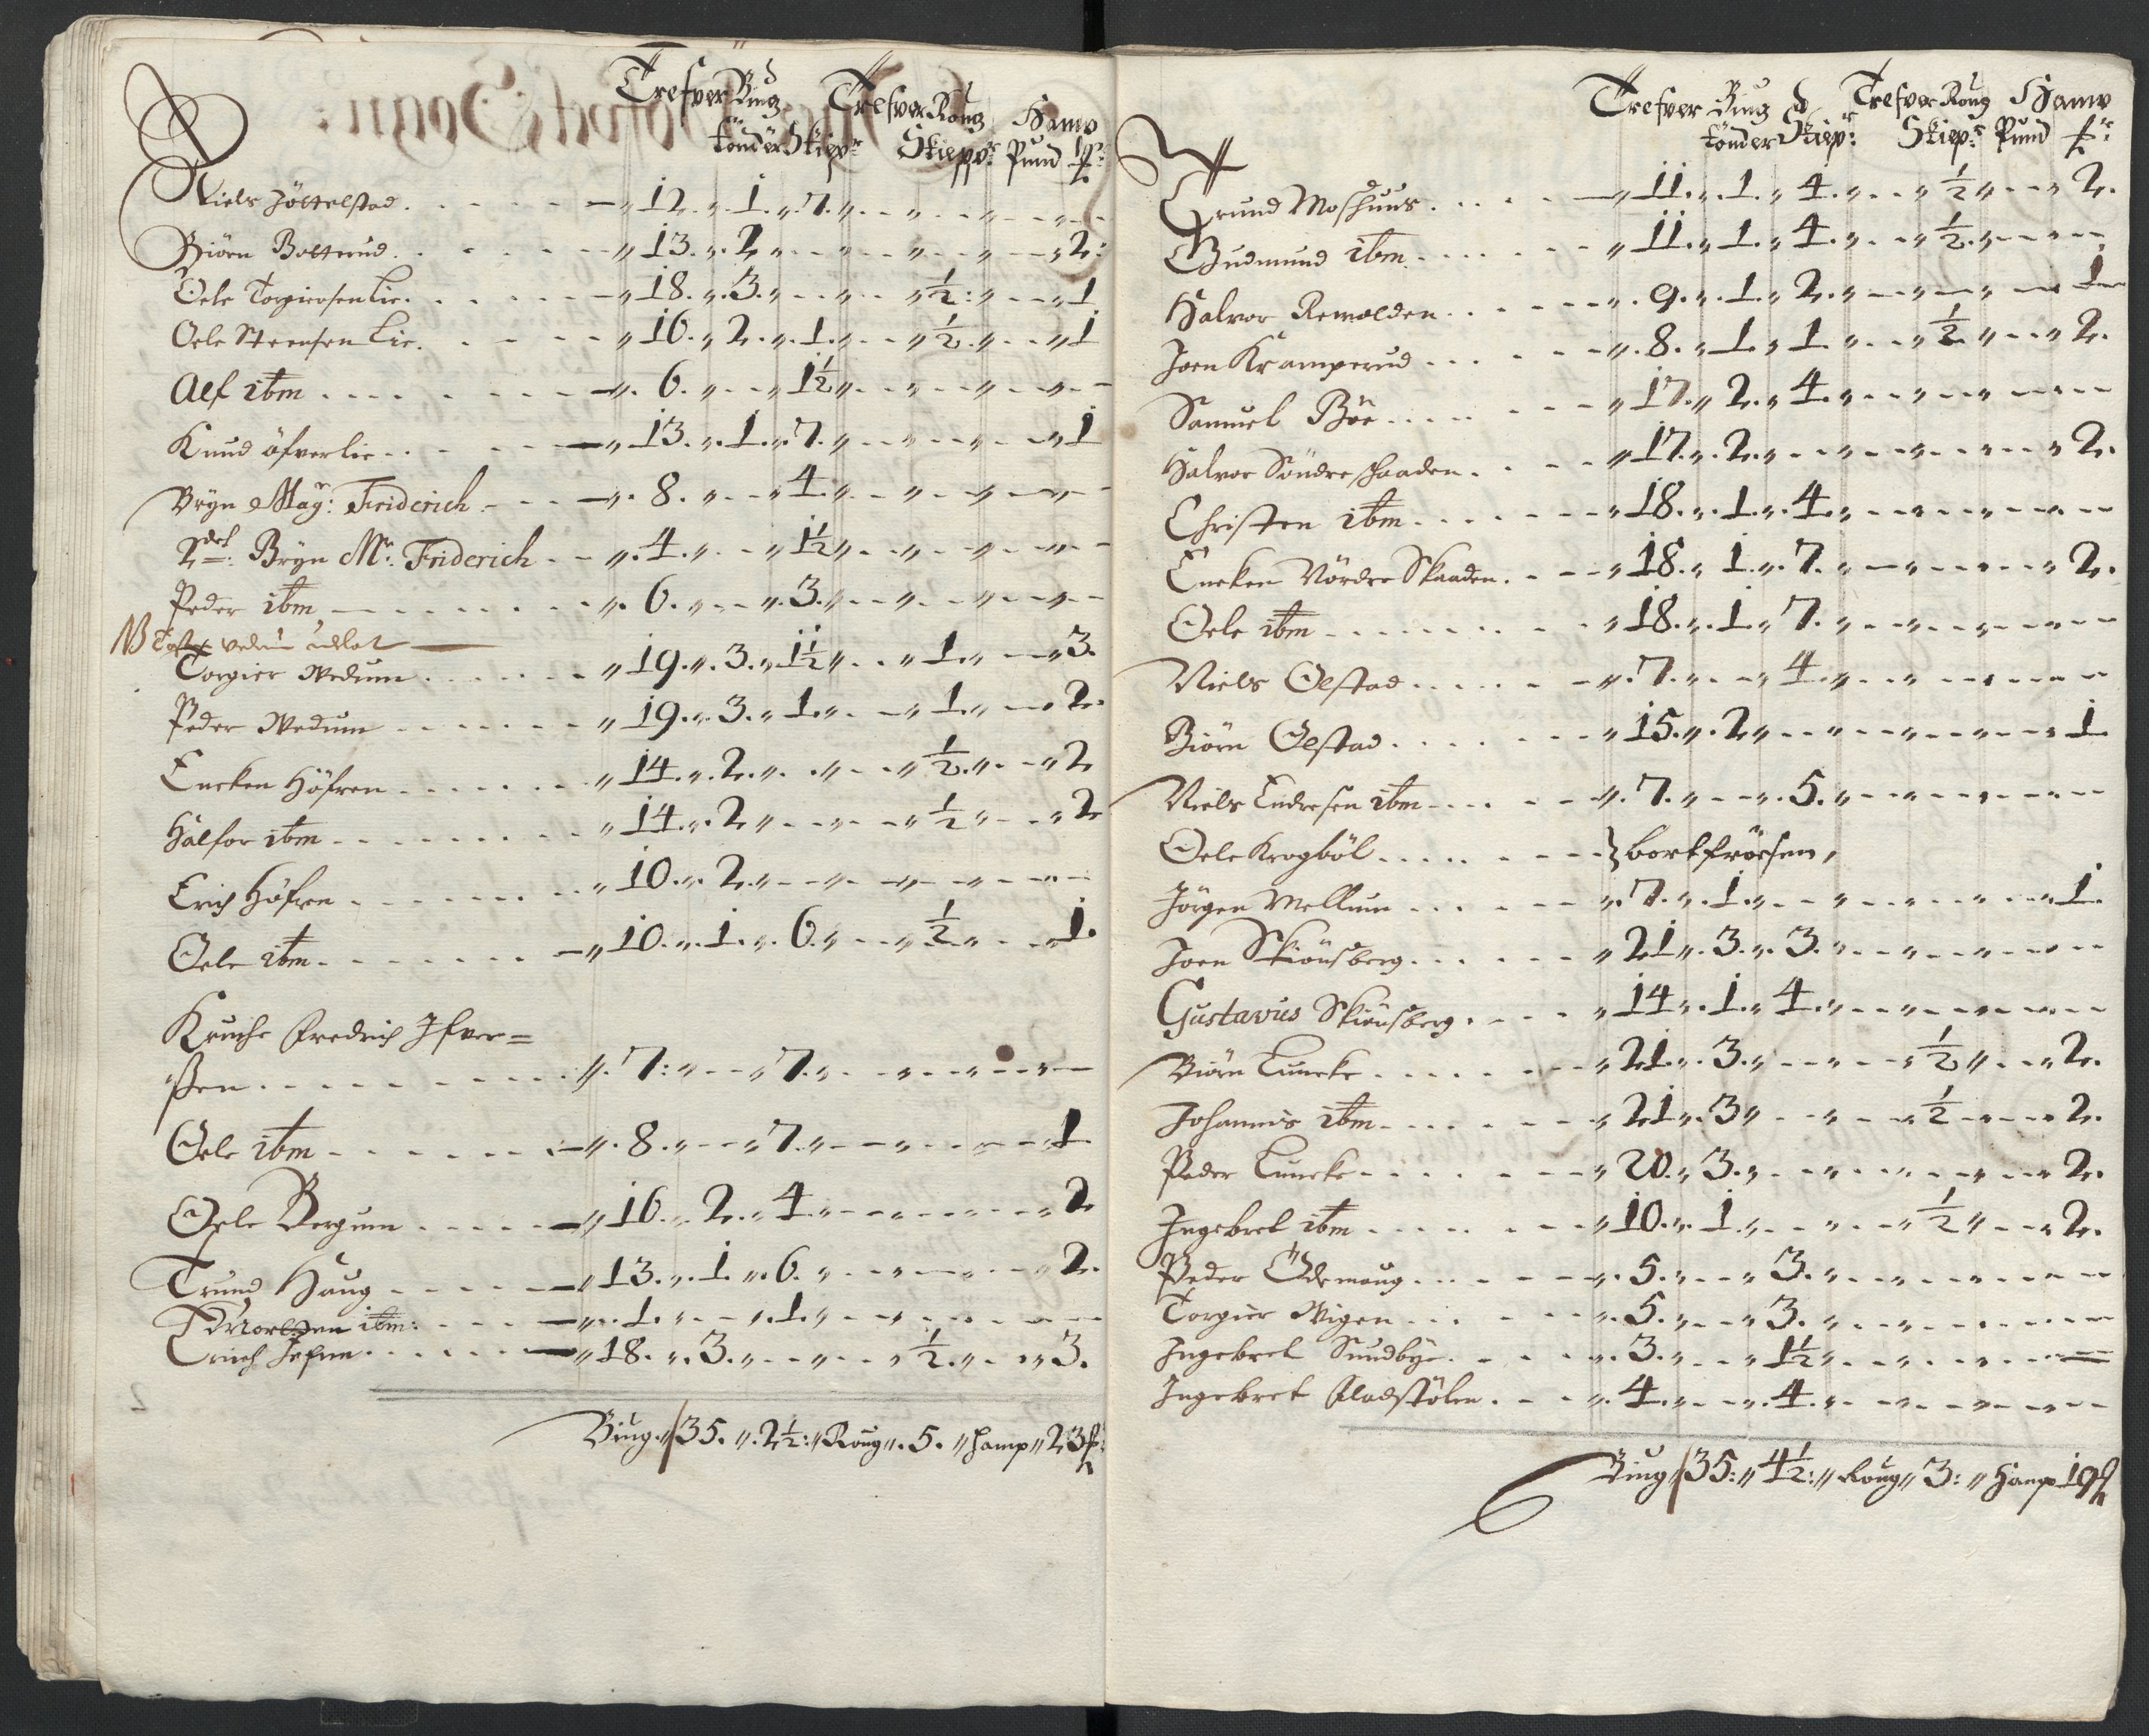 Trefver Biug Trefver Roug Hamp
tönder Skiepr Skieppr Pund
Niels Jöttelstad . . . . . 12. 1. 7.
Biörn Botterud . . . . . 13. 2 2
Oele Torgiersen Lie . . . . . 18. 3. ½ 1
Oele Steensen Lie . . . . . 16. 2. 1. ½ 1
Alf ibm . . . . . 6. 1½
Knud öfverlie . . . . . 13. 1. 7. 1
Bryn Mag: Friderich . . . 8. 4.
2det: Bryn Mr: Friderich . . 4. 1½
Peder ibm . . . . . 6. 3.
NB
Torgier Wedum . . . . . 19. 3. 1½ 1. 3.
Peder Wedum . . . . . 19. 3. 1. 1. 2.
Encken Höfren . . . . . 14. 2. ½ 2
Halfor ibm . . . . . 14. 2 ½ 2
Erich Höfren . . . . . 10. 2.
Oele ibm . . . . . 10. 1. 6. ½ 1.
Knuche Fredrich Ifver=
ßen . . . . . 7: 7.
Oele ibm . . . . . 8. 7. 1
Oele Bergum . . . . . 16. 2. 4. 2
Trund Haug . . . . . 13. 1. 6. 2.
Morthen ibm: . . . . 1. 1.
Erich Jefne . . . . . 18. 3. ½. 3.
Biug 35. 2½: Roug 5. hamp 23
Trefver Biug Trefver Roug Hamp
tönder Skiepr: Skiepr: Pund
Trund Moshuus . . . . . 11. 1. 4. ½ 2.
Gudmund ibm . . . . . 11. 1. 4. ½.
Halvor Remolden . . . . . 9. 1. 2. 1
Joen Kramperud . . . . . 8. 1. 1. ½ 2.
Samuel Böe . . . . . 17. 2. 4.
Halvor Söndre Skaaden . . . . 17. 2. 2.
Christen ibm . . . . . 18. 1. 4.
Encken Nördre Skaaden . . . 18. 1. 7. 2.
Oele ibm . . . . . 18. 1. 7.
Niels Olstad . . . . . 7. 4.
Biörn Olstad . . . . . 15. 2 1
Niels Endresen ibm . . . . . 7. 5.
Oele Krogböl . . . . . bortfröesen,
Jörgen Mellum . . . . . 7. 1. 1.
Joen Skiönsberg . . . . . 21. 3. 3.
Gustavus Skiönsberg . . . . 14. 1. 4.
Biörn Luncke . . . . . 21. 3. ½ 2.
Johannis ibm . . . . . 21. 3 ½ 2.
Peder Luncke . . . . . 20. 3. 2.
Ingebret ibm . . . . . 10. 1. ½ 2.
Peder Ödemaug . . . . . 5. 3.
Torgier Wigen . . . . . 5. 3.
Ingebret Sundbye . . . . . 3. 1½
Ingebret Fladstölen . . . 4. 4.
Biug 35: 4½: Roug 3: Hamp 19